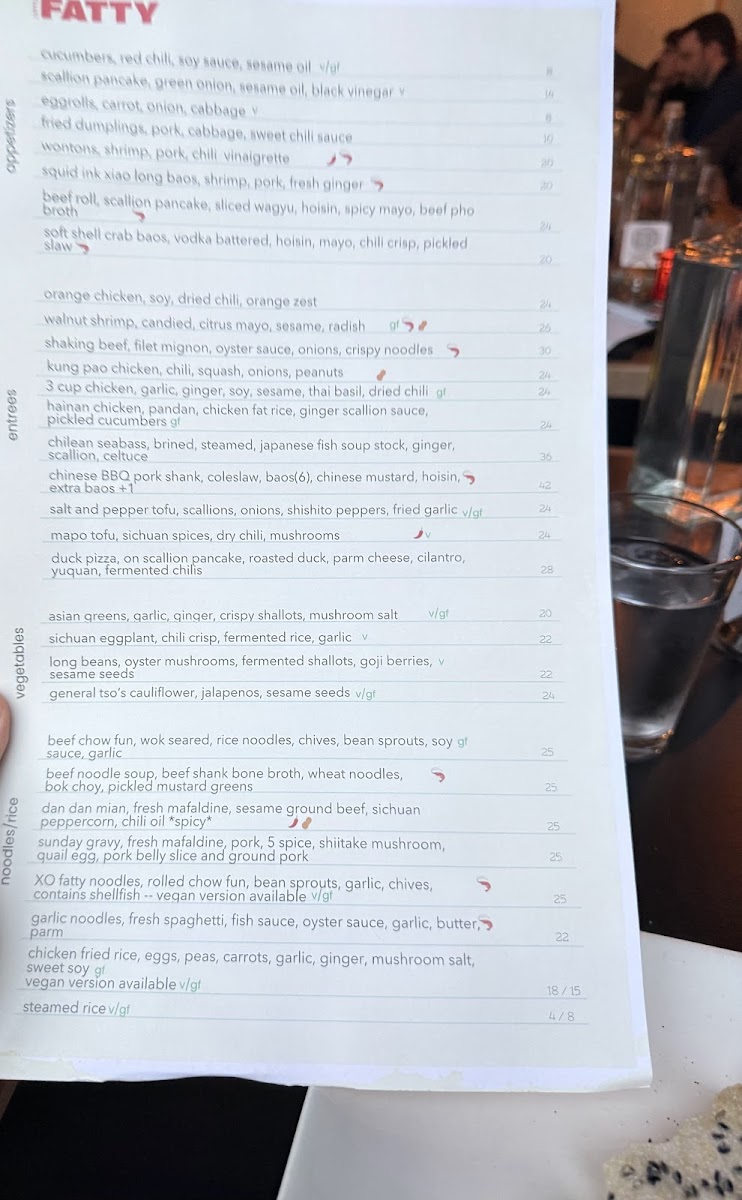 FATTY
appetizers
cucumbers, red chili, soy sauce, sesame oil v/gf 8
scallion pancake, green onion, sesame oil, black vinegar v 14
eggrolls, carrot, onion, cabbage v 8
fried dumplings, pork, cabbage, sweet chili sauce
wontons, shrimp, pork, chili vinaigrette 20
squid ink xiao long baos, shrimp, pork, fresh ginger 20
beef roll, scallion pancake, sliced wagyu, hoisin, spicy mayo, beef pho
broth 24
soft shell crab baos, vodka battered, hoisin, mayo, chili crisp, pickled
slaw 20
entrees
orange chicken, soy, dried chili, orange zest 24
walnut shrimp, candied, citrus mayo, sesame, radish gf 26
shaking beef, filet mignon, oyster sauce, onions, crispy noodles 30
kung pao chicken, chili, squash, onions, peanuts 24
3 cup chicken, garlic, ginger, soy, sesame, thai basil, dried chili gf 24
hainan chicken, pandan, chicken fat rice, ginger scallion sauce,
pickled cucumbers gf 24
chilean seabass, brined, steamed, japanese fish soup stock, ginger,
scallion, celtuce 36
chinese BBQ pork shank, coleslaw, baos(6), chinese mustard, hoisin,
extra baos +1 42
salt and pepper tofu, scallions, onions, shishito peppers, fried garlic v/gf 24
mapo tofu, sichuan spices, dry chili, mushrooms v 24
duck pizza, on scallion pancake, roasted duck, parm cheese, cilantro,
yuquan, fermented chilis 28
vegetables
asian greens, garlic, ginger, crispy shallots, mushroom salt v/gf 20
sichuan eggplant, chili crisp, fermented rice, garlic v 22
long beans, oyster mushrooms, fermented shallots, goji berries, v
sesame seeds 22
general tso's cauliflower, jalapenos, sesame seeds v/gf 24
noodles/rice
beef chow fun, wok seared, rice noodles, chives, bean sprouts, soy gf
sauce, garlic 25
beef noodle soup, beef shank bone broth, wheat noodles,
bok choy, pickled mustard greens 25
dan dan mian, fresh mafaldine, sesame ground beef, sichuan
peppercorn, chili oil *spicy* 25
sunday gravy, fresh mafaldine, pork, 5 spice, shiitake mushroom,
quail egg, pork belly slice and ground pork 25
XO fatty noodles, rolled chow fun, bean sprouts, garlic, chives,
contains shellfish -- vegan version available v/gf 25
garlic noodles, fresh spaghetti, fish sauce, oyster sauce, garlic, butter,
parm 22
chicken fried rice, eggs, peas, carrots, garlic, ginger, mushroom salt,
sweet soy gf
vegan version available v/gf 18 / 15
steamed rice v/gf 4 / 8